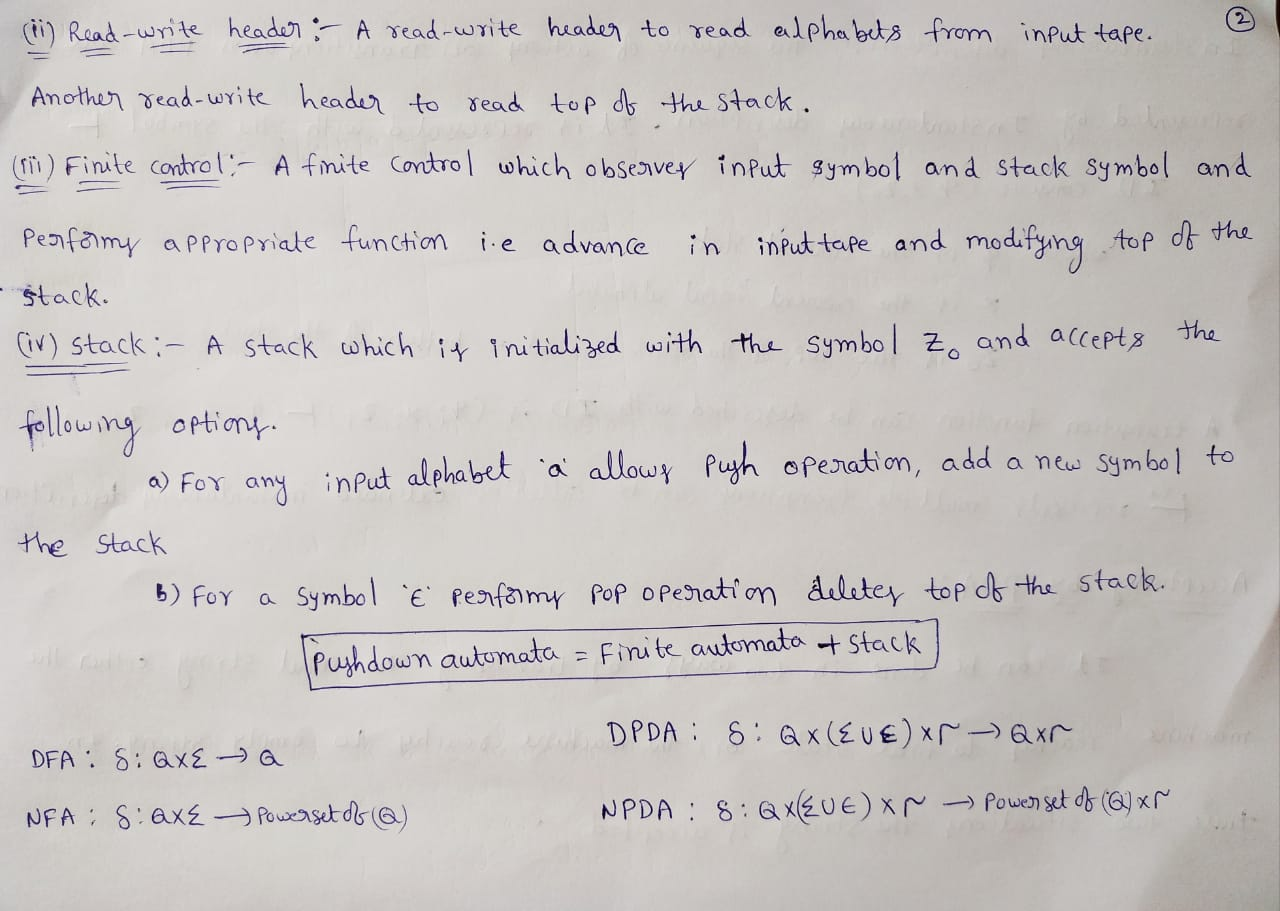 (ii) Read-write header :- A read-write header to read alphabets from input tape. ②
Another read-write header to read top of the stack.
(iii) Finite control :- A finite control which observes input symbol and stack symbol and
Performs appropriate function i.e advance in input tape and modifying top of the
stack.
(iv) stack :- A stack which is initialized with the symbol Z₀ and accepts the
following options.
a) For any input alphabet 'a' allows push operation, add a new symbol to
the stack
b) For a symbol 'ε' performs pop operation deletes top of the stack.
Pushdown automata = Finite automata + Stack
DFA : δ: Q×Σ → Q
DPDA : δ: Q×(Σ∪ε)×Γ → Q×Γ
NFA : δ: Q×Σ → Powerset of (Q)
NPDA : δ: Q×(Σ∪ε)×Γ → Power set of (Q)×Γ